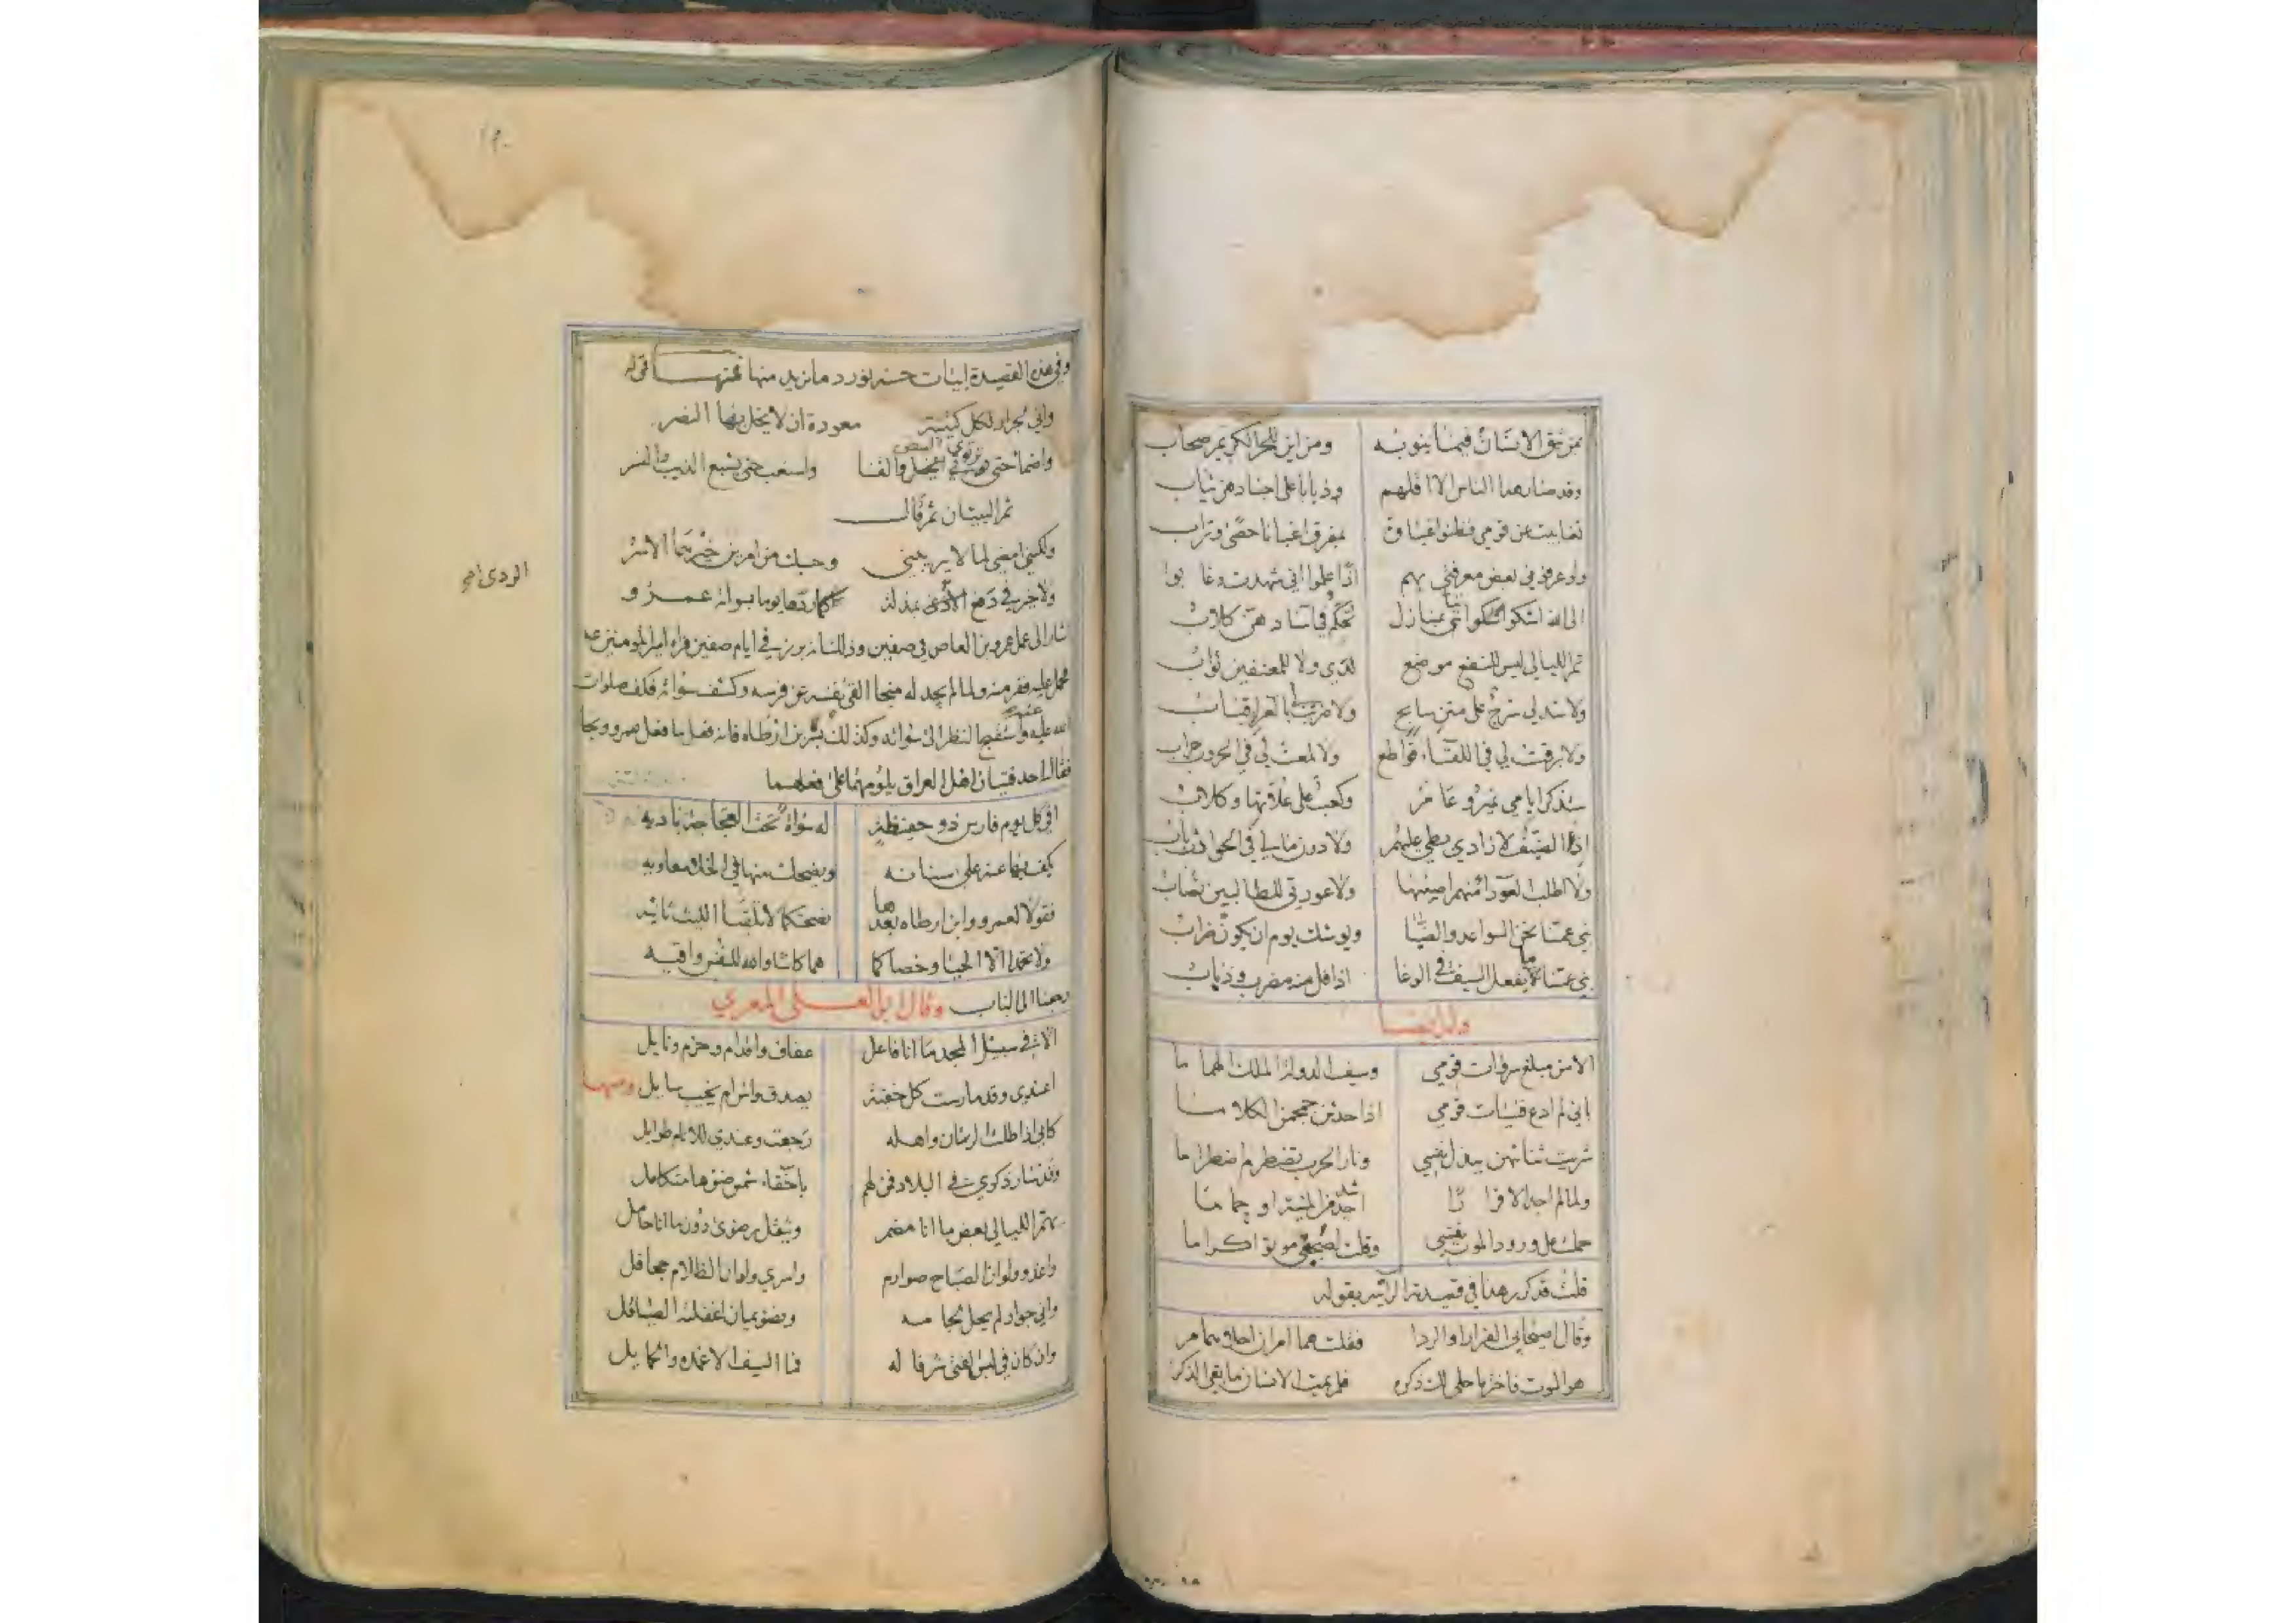 بمن يثق الانسان فيما ينوبه ومن اين للحر الكريم صحاب
وقد صار هذا الناس الا اقلهم وذيابا على اجسادهن ثياب
تغابيت عن قومي فظنوا غباوة بمفرق اغبانا حصى وتراب
ولو عرفوني بعض معرفتي بهم اذا علموا اني شهدت وغابوا
الى الله اشكو اننا بمنازل تحكم في آسادهن كلاب
تمر الليالي ليس للنفع موضع لدي ولا للمعتفين ثواب
ولا شد لي سرج على متن سابح ولا ضربت لي بالعراء قباب
ولا برقت لي في اللقاء قواطع ولا لمعت لي في الحروب حراب
ستذكر ايامي نمير وعامر وكعب على علاتها وكلاب
انا الضيف لا زادي بطي عليهم ولا دون مالي في الحوادث باب
ولا اطلب العوراء منهم اصيبها ولا عورتي للطالبين تصاب
بني عمنا نحن السواعد والضبا ويوشك يوم ان يكون ضراب
بني عمنا ما يفعل السيف في الوغا اذا فل منه مضرب وذباب
وله ايضا
الا من مبلغ سروات قومي وسيف الدولة الملك الهماما
باني لم ادع فتيات قومي اذا حدثن جمجمن الكلاما
شريت ثناءهن ببذل نفسي ونار الحرب تضطرم اضطراما
ولما لم اجد الا فرارا اشد من المنية او حماما
حملت على ورود الموت نفسي وقلت لصحبتي موتوا كراما
قلت قد كرر هذا في قصيدته الرائية بقوله
وقال اصيحابي الفرار او الردا فقلت هما امران احلاهما مر
هو الموت فاختر ما حلى لك ذكره فلم يمت الانسان ما بقي الذكر
وفي هذه القصيدة ابيات حسنة نورد ما نريد منها فمنها قوله
واني لجرار لكل كتيبة معودة ان لا يخل بها النصر
واضمأ حتى ترتوي البيض والقنا واسغب حتى يشبع الذيب والنسر
ثم البيتان ثم قال
ولكنني امضي لما لا يريبني وحسبك من امرين خيرهما الاسر
ولا خير في دفع الاذى بمذلة كما ردها يوما بسواته عمرو
الردى صح
اشار الى عمل عمرو بن العاص في صفين وذلك انه برز في ايام صفين فراه امير المومنين عنه
فحمل عليه ففر منه ولما لم يجد له منجا القى نفسه عن فرسه وكشف سواته فكف صلوات
الله عليه واستقبح النظر الى سواته وكذلك بسر بن ارطاه فانه فعل ما فعل عمرو ونجا
فقال احد فتيان اهل العراق يلومهما على فعلهما
افي كل يوم فارس ذو حفيظة له سواة تحت العجاجة باديه
يكف بها عنه علي سنانه ويضحك منها في الخلاء معاويه
فقولا لعمرو وابن ارطاه بعدها نصحتكما لا تلقيا الليث ثانيه
ولا تحمدا الا الحيا وخصاكما هما كانتا والله للنفس واقيه
رجعنا الى الباب وقال ابو العلى المعري
الا في سبيل المجد ما انا فاعل عفاف واقدام وحزم ونايل
اعندي وقد مارست كل خفية يصدق واش ام يخيب سايل ومنها
كاني اذا طلت الزمان واهله رجعت وعندي للانام طوايل
وقد سار ذكري في البلاد فمن لهم باخفاء شمس ضوها متكامل
يهم الليالي بعض ما انا مضمر ويثقل رضوى دون ما انا حامل
واغدو ولو ان الصباح صوارم واسري ولو ان الظلام جحافل
واني جواد لم يحل لجامه ونضو يمان اغفلته الصياقل
وان كان في لبس الفتى شرفا له فما السيف الا غمده والحمايل